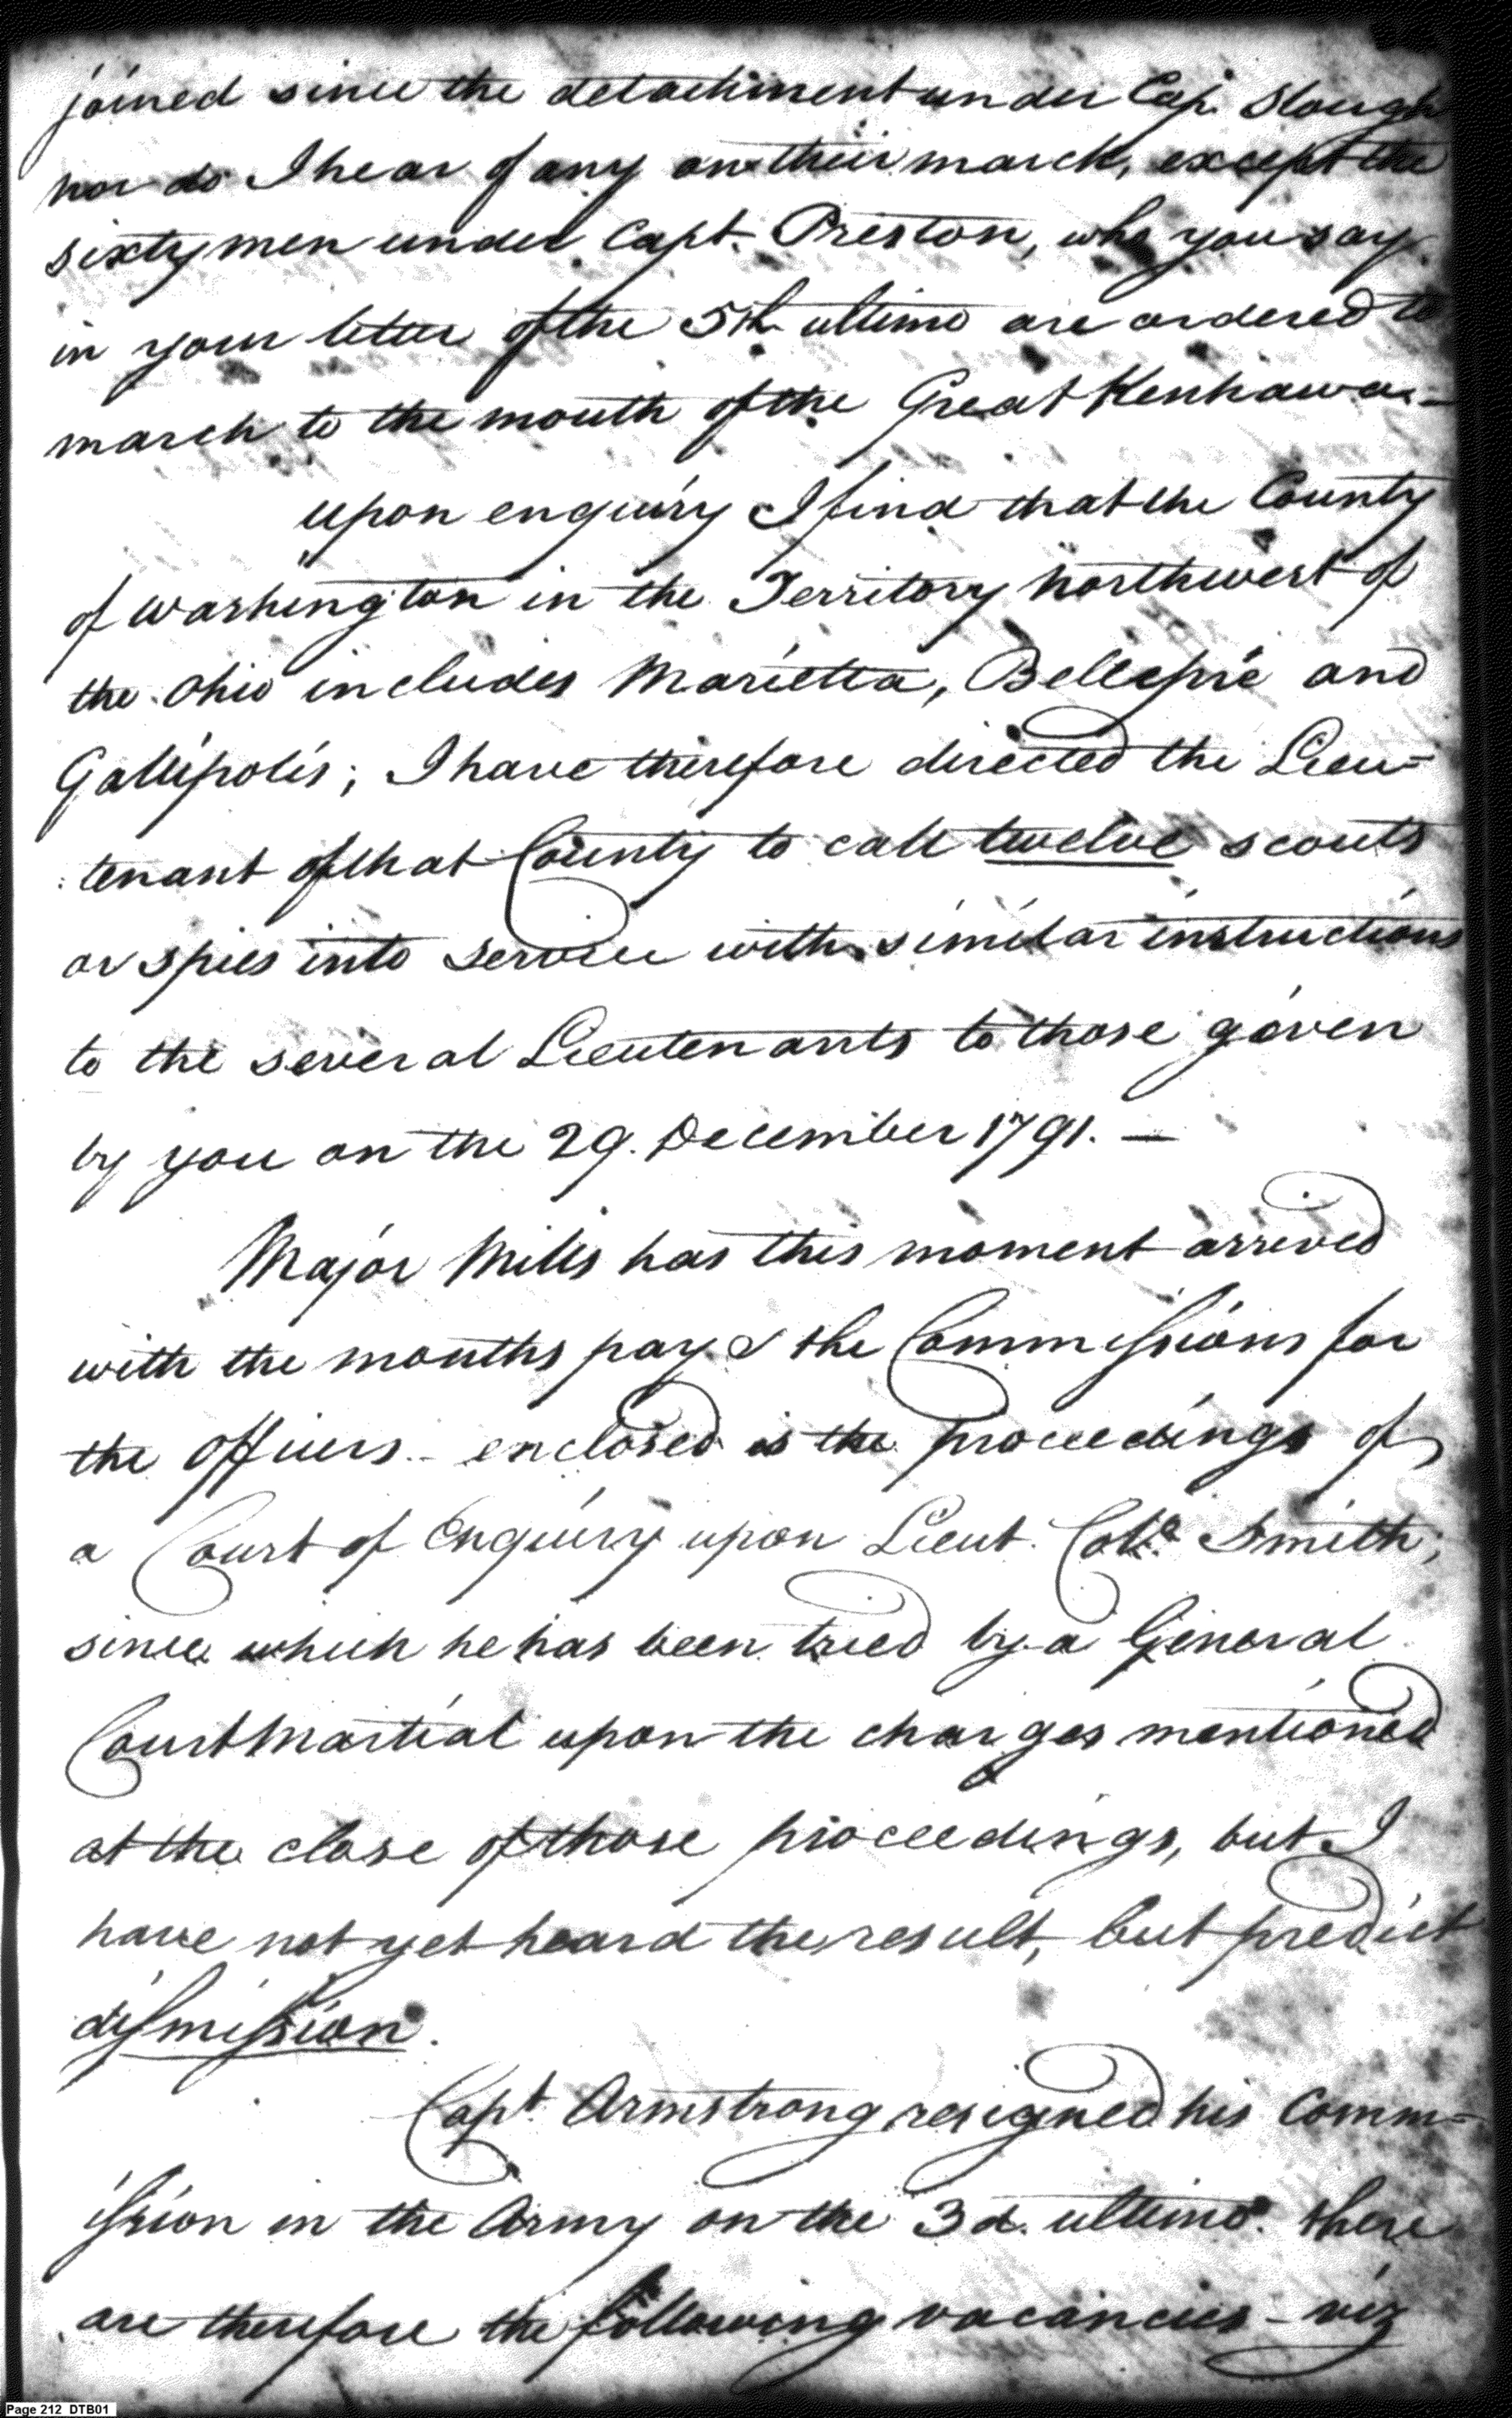 joined since the detachment under Cap. Slough
nor do I hear of any on their march, except the
sixty men under Capt. Preston, who you say
in your letter of the 5th ultimo are ordered to
march to the mouth of the Great Kenhawa -
upon enquiry I find that the County
of Washington in the Territory Northwest of
the Ohio includes Marietta, Bellepré and
Gallipolis; I have therefore directed the Lieu=
tenant of that County to call twelve scouts
or spies into service with similar instructions
to the several Lieutenants to those given
by you on the 29. December 1791. —
Major Mills has this moment arrived
with the months pay & the Commissions for
the Officers - enclosed is the proceedings of
a Court of Enquiry upon Lieut. Colo. Smith;
since which he has been tried by a General
Court Martial upon the charges mentioned
at the close of those proceedings, but I
have not yet heard the result, but predict
dismission.
Capt. Armstrong resigned his Comm=
ission in the Army on the 3d. ultimo. there
are therefore the following vacancies - viz
Page 212 DTB01